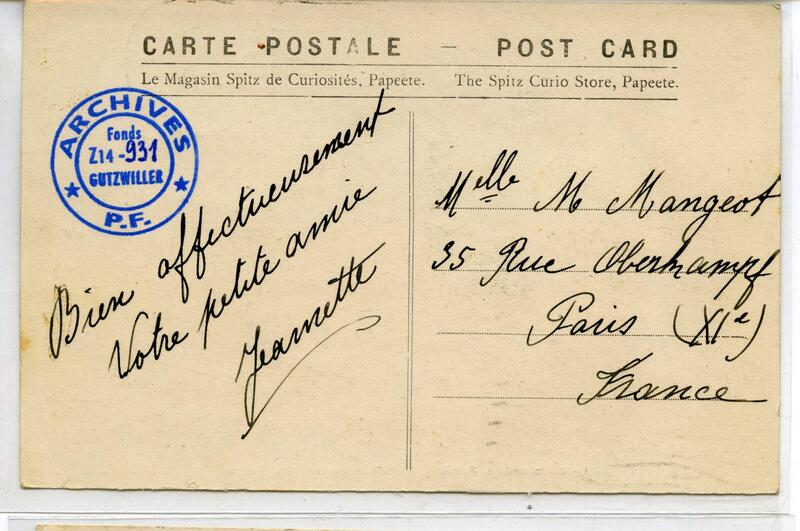 CARTE POSTALE — POST CARD
Le Magasin Spitz de Curiosités, Papeete. The Spitz Curio Store, Papeete.
ARCHIVES
Fonds
Z14-931
GUTZWILLER
P.F.
Bien affectueusement
Votre petite amie
Jeannette
Melle M Mangeot
35 Rue Oberkampf
Paris (XIe)
France